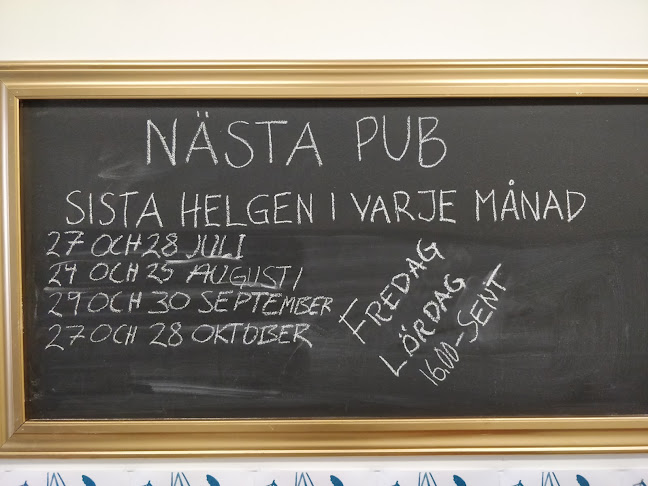 NÄSTA PUB
SISTA HELGEN I VARJE MÅNAD
27 OCH 28 JULI
24 OCH 25 AUGUSTI
29 OCH 30 SEPTEMBER
27 OCH 28 OKTOBER
FREDAG
LÖRDAG
16.00-SENT